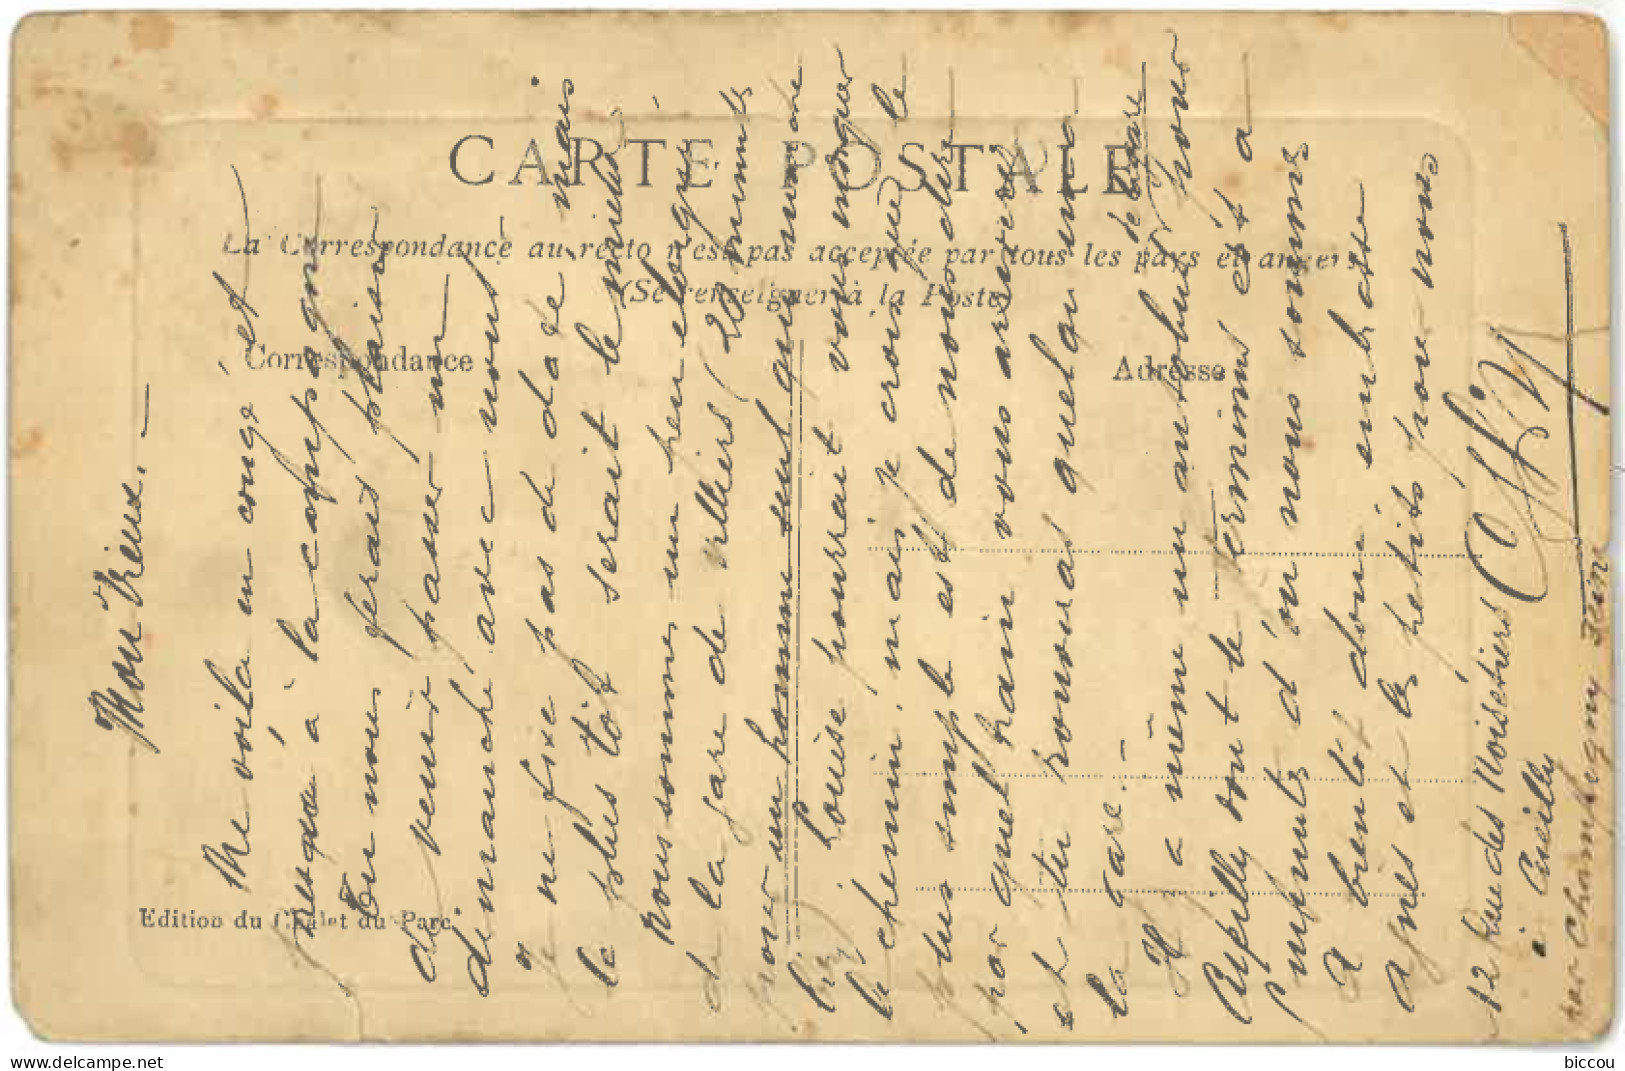 CARTE POSTALE
La Correspondance au recto n'est pas acceptée par tous les pays étrangers
(Se renseigner à la Poste)
Correspondance
Adresse
Edition du Chalet du Parc
Mon Vieux. —
Me voila en congé et
presque à la campagne
Tu nous ferais plaisir
de venir passer un
dimanche avec nous
Je ne fixe pas de date mais
le plus tôt serait le mieux
Nous sommes un peu eloignés
de la gare de Villiers (20 minutes
pour un homme seul qui marche
bien) Louise pourrait vous indiquer
le chemin, mais je crois que le
plus simple est de nous dire
par quel train vous arriverez
et tu trouveras quelqu'un à
la gare. —
Il a même un autobus pour
de la gare
Cuilly dont le terminus est à
5 minutes d'où nous sommes
A bientôt donc embrasse
Agnès et les petits pour nous
12 Rue des Noisetiers
à Cuilly
par Champigny Seine
biccou